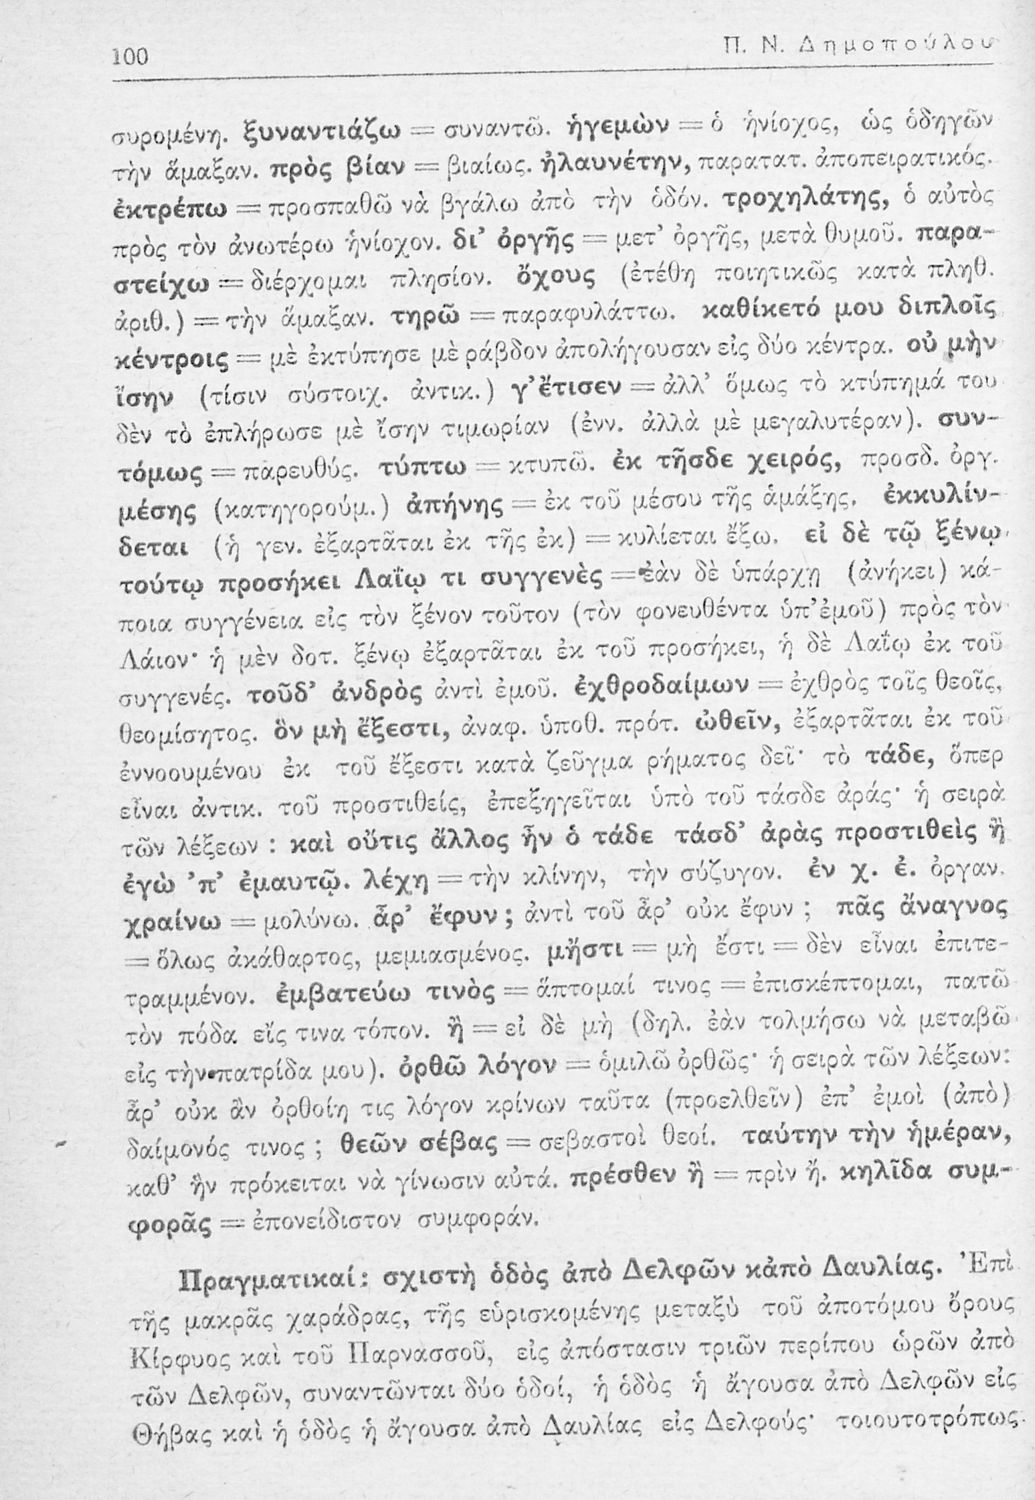 100
Π. Ν. Δημοπούλου
συρομένη. ξυναντιάζω = συναντῶ. ἡγεμὼν = ὁ ἡνίοχος, ὡς ὁδηγῶν
τὴν ἅμαξαν. πρὸς βίαν = βιαίως. ἠλαυνέτην, παρατατ. ἀποπειρατικός.
ἐκτρέπω = προσπαθῶ νὰ βγάλω ἀπὸ τὴν ὁδόν. τροχηλάτης, ὁ αὐτὸς
πρὸς τὸν ἀνωτέρω ἡνίοχον. δι' ὀργῆς = μετ' ὀργῆς, μετὰ θυμοῦ. παρα-
στείχω = διέρχομαι πλησίον. ὄχους (ἐτέθη ποιητικῶς κατὰ πληθ.
ἀριθ.) = τὴν ἅμαξαν. τηρῶ = παραφυλάττω. καθίκετό μου διπλοῖς
κέντροις = μὲ ἐκτύπησε μὲ ράβδον ἀπολήγουσαν εἰς δύο κέντρα. οὐ μὴν
ἴσην (τίσιν σύστοιχ. ἀντικ.) γ' ἔτισεν = ἀλλ' ὅμως τὸ κτύπημά του
δὲν τὸ ἐπλήρωσε μὲ ἴσην τιμωρίαν (ἐνν. ἀλλὰ μὲ μεγαλυτέραν). συν-
τόμως = παρευθύς. τύπτω = κτυπῶ. ἐκ τῆσδε χειρός, προσδ. ὀργ.
μέσης (κατηγορούμ.) ἀπήνης = ἐκ τοῦ μέσου τῆς ἁμάξης. ἐκκυλίν-
δεται (ἡ γεν. ἐξαρτᾶται ἐκ τῆς ἐκ) = κυλίεται ἔξω. εἰ δὲ τῷ ξένῳ
τούτῳ προσήκει Λαΐῳ τι συγγενὲς = ἐὰν δὲ ὑπάρχῃ (ἀνήκει) κά-
ποια συγγένεια εἰς τὸν ξένον τοῦτον (τὸν φονευθέντα ὑπ' ἐμοῦ) πρὸς τὸν
Λάιον· ἡ μὲν δοτ. ξένῳ ἐξαρτᾶται ἐκ τοῦ προσήκει, ἡ δὲ Λαΐῳ ἐκ τοῦ
συγγενές. τοῦδ' ἀνδρὸς ἀντὶ ἐμοῦ. ἐχθροδαίμων = ἐχθρὸς τοῖς θεοῖς,
θεομίσητος. ὃν μὴ ἔξεστι, ἀναφ. ὑποθ. πρότ. ὠθεῖν, ἐξαρτᾶται ἐκ τοῦ
ἐννοουμένου ἐκ τοῦ ἔξεστι κατὰ ζεῦγμα ρήματος δεῖ· τὸ τάδε, ὅπερ
εἶναι ἀντικ. τοῦ προστιθείς, ἐπεξηγεῖται ὑπὸ τοῦ τάσδε ἀράς· ἡ σειρὰ
τῶν λέξεων : καὶ οὔτις ἄλλος ἦν ὁ τάδε τάσδ' ἀρὰς προστιθεὶς ἢ
ἐγὼ 'π' ἐμαυτῷ. λέχη = τὴν κλίνην, τὴν σύζυγον. ἐν χ. ἐ. ὀργαν.
χραίνω = μολύνω. ἆρ' ἔφυν; ἀντὶ τοῦ ἆρ' οὐκ ἔφυν ; πᾶς ἄναγνος
= ὅλως ἀκάθαρτος, μεμιασμένος. μἤστι = μὴ ἔστι = δὲν εἶναι ἐπιτε-
τραμμένον. ἐμβατεύω τινὸς = ἅπτομαί τινος = ἐπισκέπτομαι, πατῶ
τὸν πόδα εἴς τινα τόπον. ἢ = εἰ δὲ μὴ (δηλ. ἐὰν τολμήσω νὰ μεταβῶ
εἰς τὴν πατρίδα μου). ὀρθῶ λόγον = ὁμιλῶ ὀρθῶς· ἡ σειρὰ τῶν λέξεων:
ἆρ' οὐκ ἂν ὀρθοίη τις λόγον κρίνων ταῦτα (προελθεῖν) ἐπ' ἐμοὶ (ἀπὸ)
δαίμονός τινος ; θεῶν σέβας = σεβαστοὶ θεοί. ταύτην τὴν ἡμέραν,
καθ' ἣν πρόκειται νὰ γίνωσιν αὐτά. πρέσθεν ἢ = πρὶν ἤ. κηλῖδα συμ-
φορᾶς = ἐπονείδιστον συμφοράν.
Πραγματικαί: σχιστὴ ὁδὸς ἀπὸ Δελφῶν κἀπὸ Δαυλίας. Ἐπὶ
τῆς μακρᾶς χαράδρας, τῆς εὑρισκομένης μεταξὺ τοῦ ἀποτόμου ὄρους
Κίρφυος καὶ τοῦ Παρνασσοῦ, εἰς ἀπόστασιν τριῶν περίπου ὡρῶν ἀπὸ
τῶν Δελφῶν, συναντῶνται δύο ὁδοί, ἡ ὁδὸς ἡ ἄγουσα ἀπὸ Δελφῶν εἰς
Θήβας καὶ ἡ ὁδὸς ἡ ἄγουσα ἀπὸ Δαυλίας εἰς Δελφούς· τοιουτοτρόπως